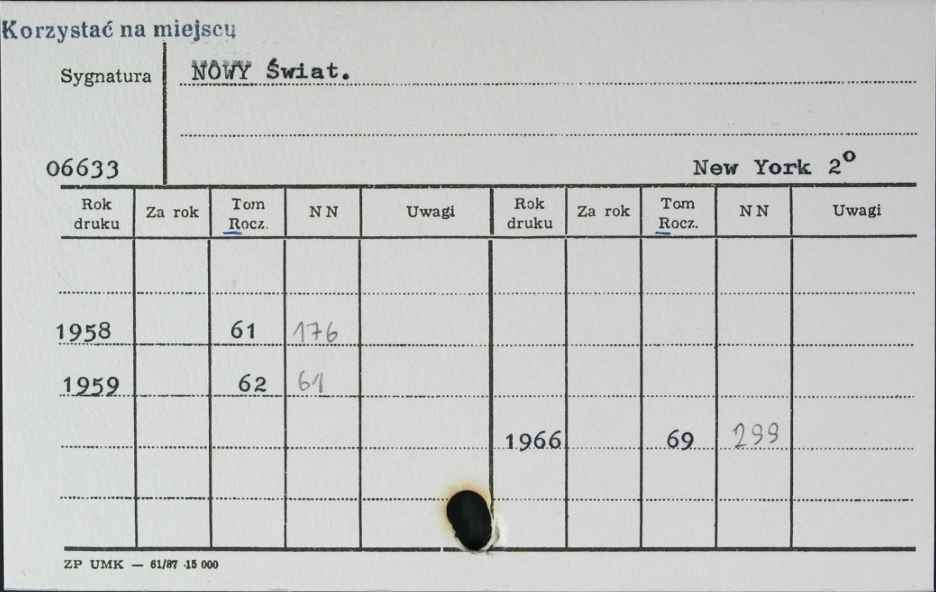 Korzystać na miejscu
Sygnatura NOWY Świat.
06633 New York 2º
Rok druku Za rok Tom Rocz. NN Uwagi Rok druku Za rok Tom Rocz. NN Uwagi
1958 61 176
1959 62 61
1966 69 299
ZP UMK — 61/87 ·15 000